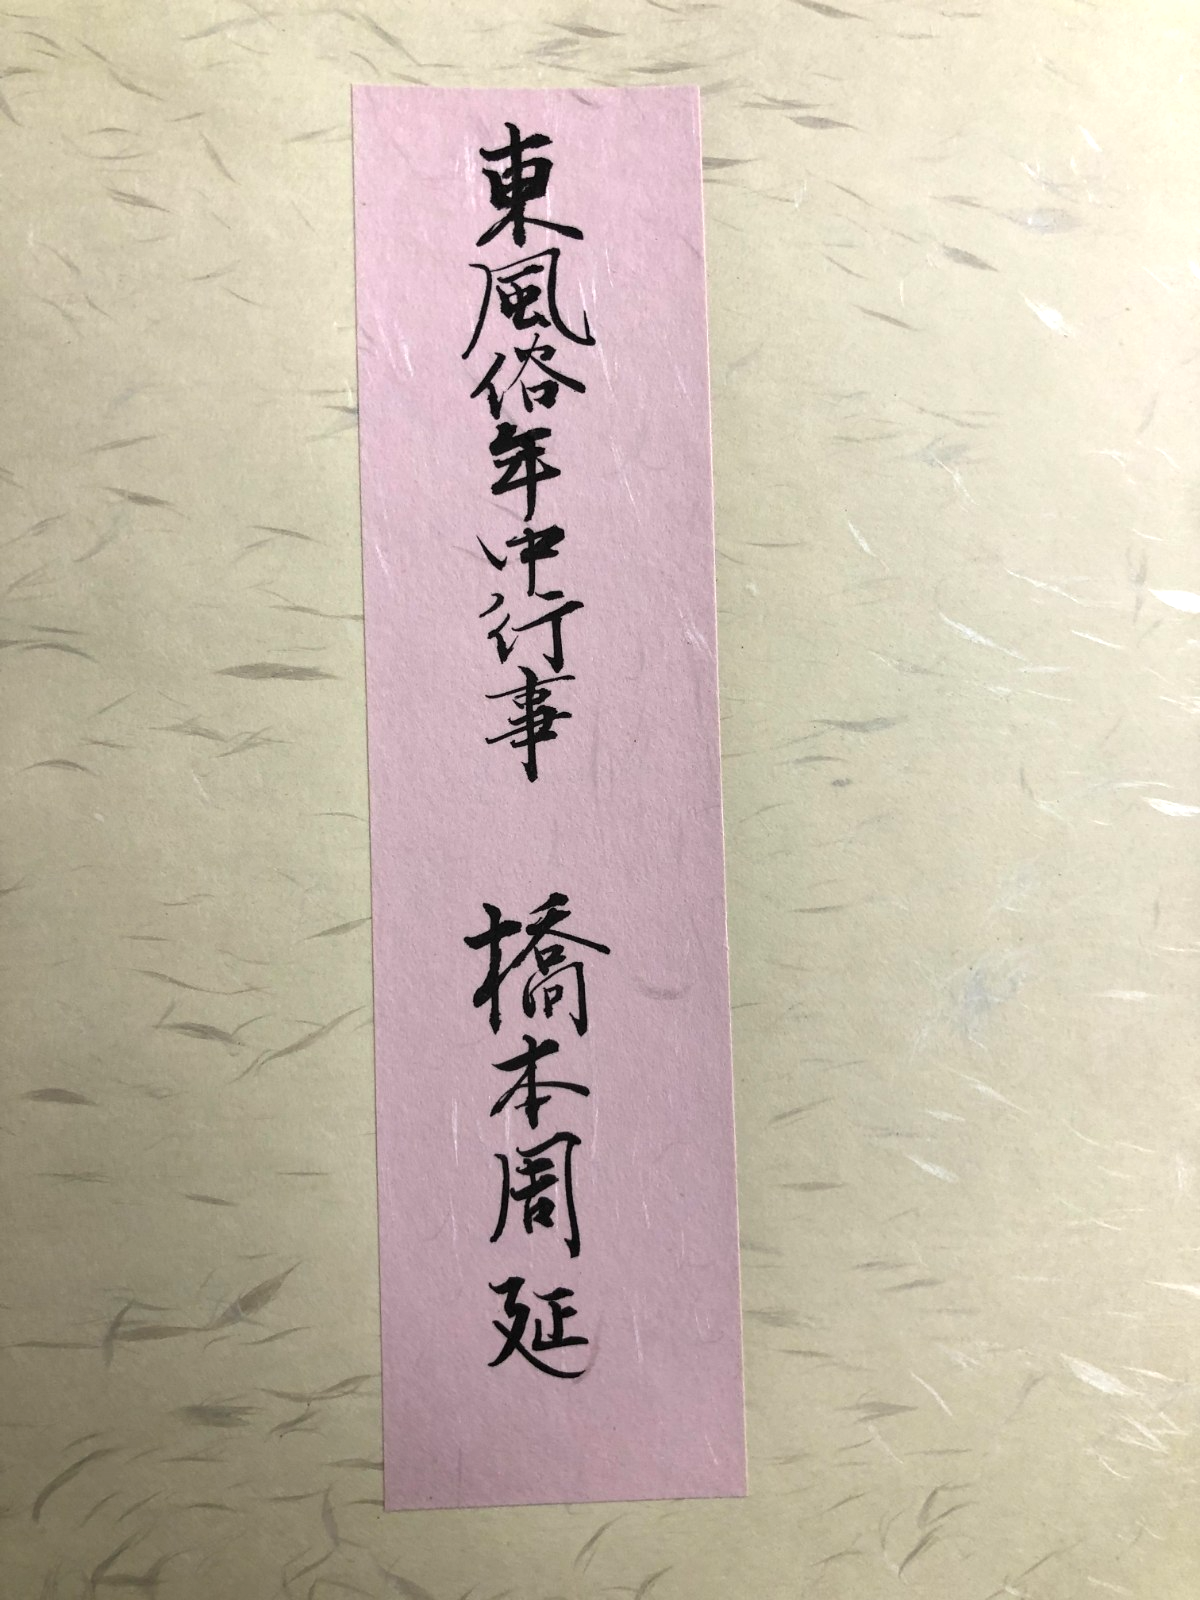 東風俗年中行事　橋本周延